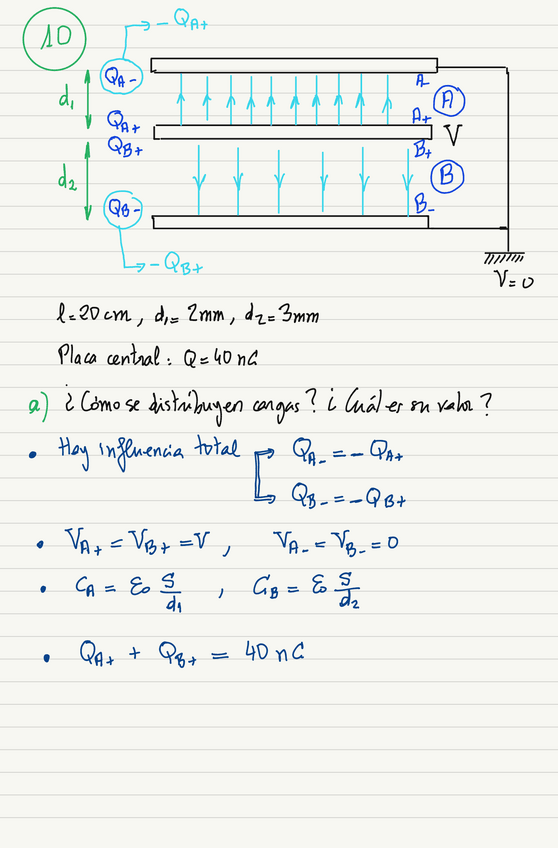 10
→ - QA+
QA-
A-
d1
A
QA+
A+
V
QB+
B+
d2
B
QB-
B-
→ - QB+
V=0
l=20cm, d1=2mm, d2=3mm
Placa central: Q=40nC
a) ¿Cómo se distribuyen cargas? ¿Cuál es su valor?
• Hay influencia total → QA- = - QA+
→ QB- = - QB+
• VA+ = VB+ = V, VA- = VB- = 0
• CA = ε0 S/d1, CB = ε0 S/d2
• QA+ + QB+ = 40 nC